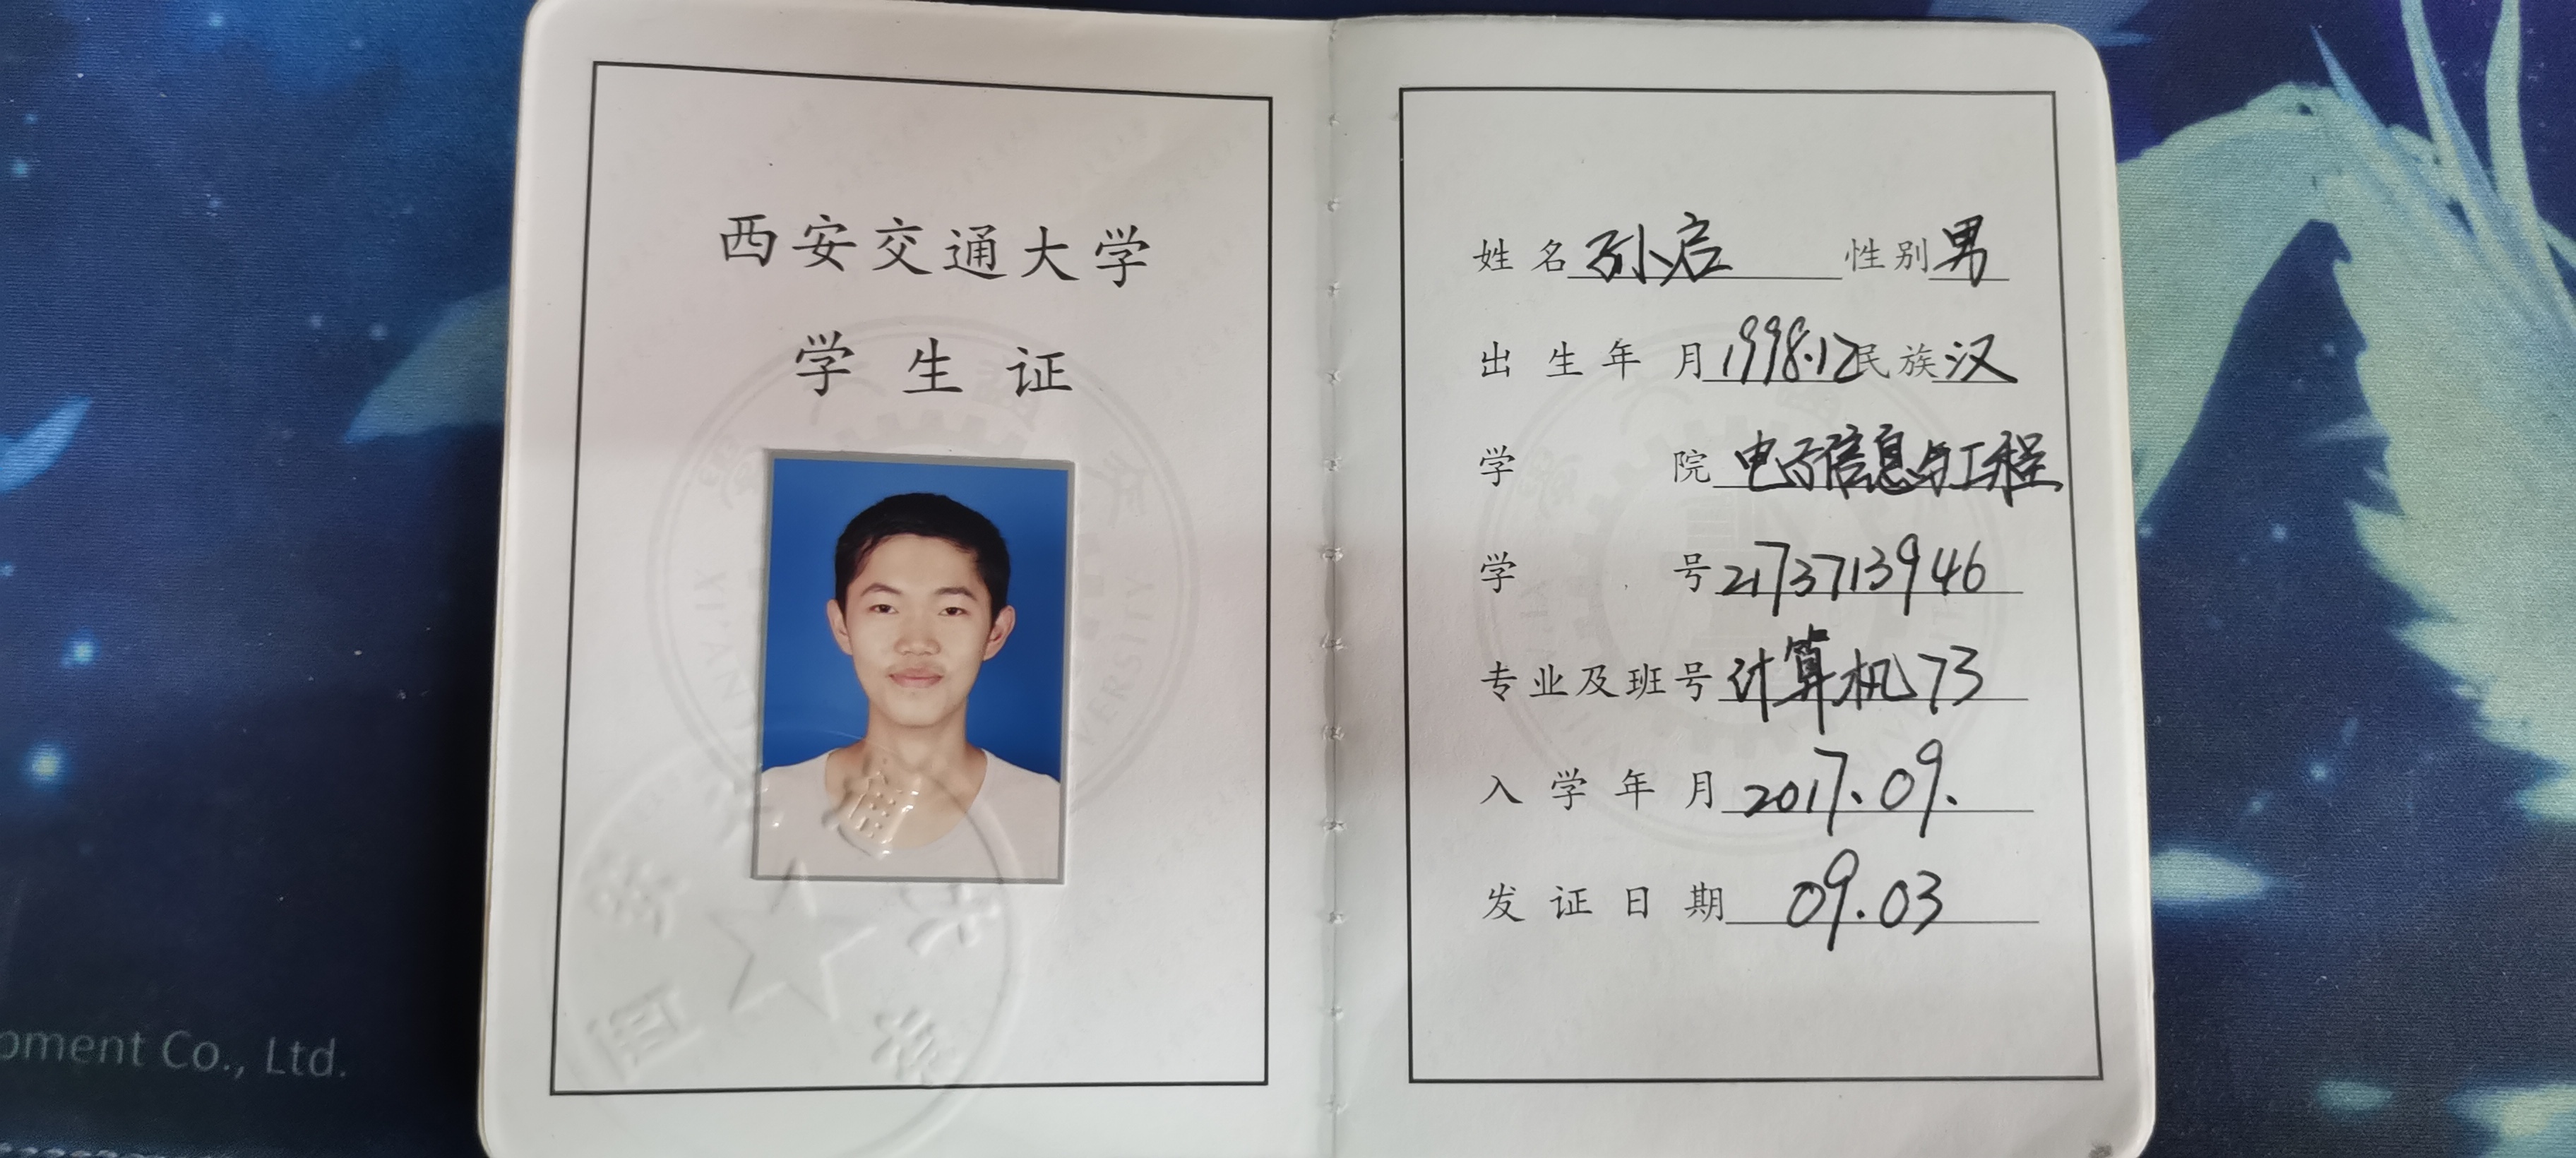 西安交通大学
学生证
姓名 孙启 性别 男
出生年月 1998.12 民族 汉
学院 电子信息与工程
学号 2173713946
专业及班号 计算机73
入学年月 2017.09.
发证日期 09.03
XI'AN
VERSITY
pment Co., Ltd.